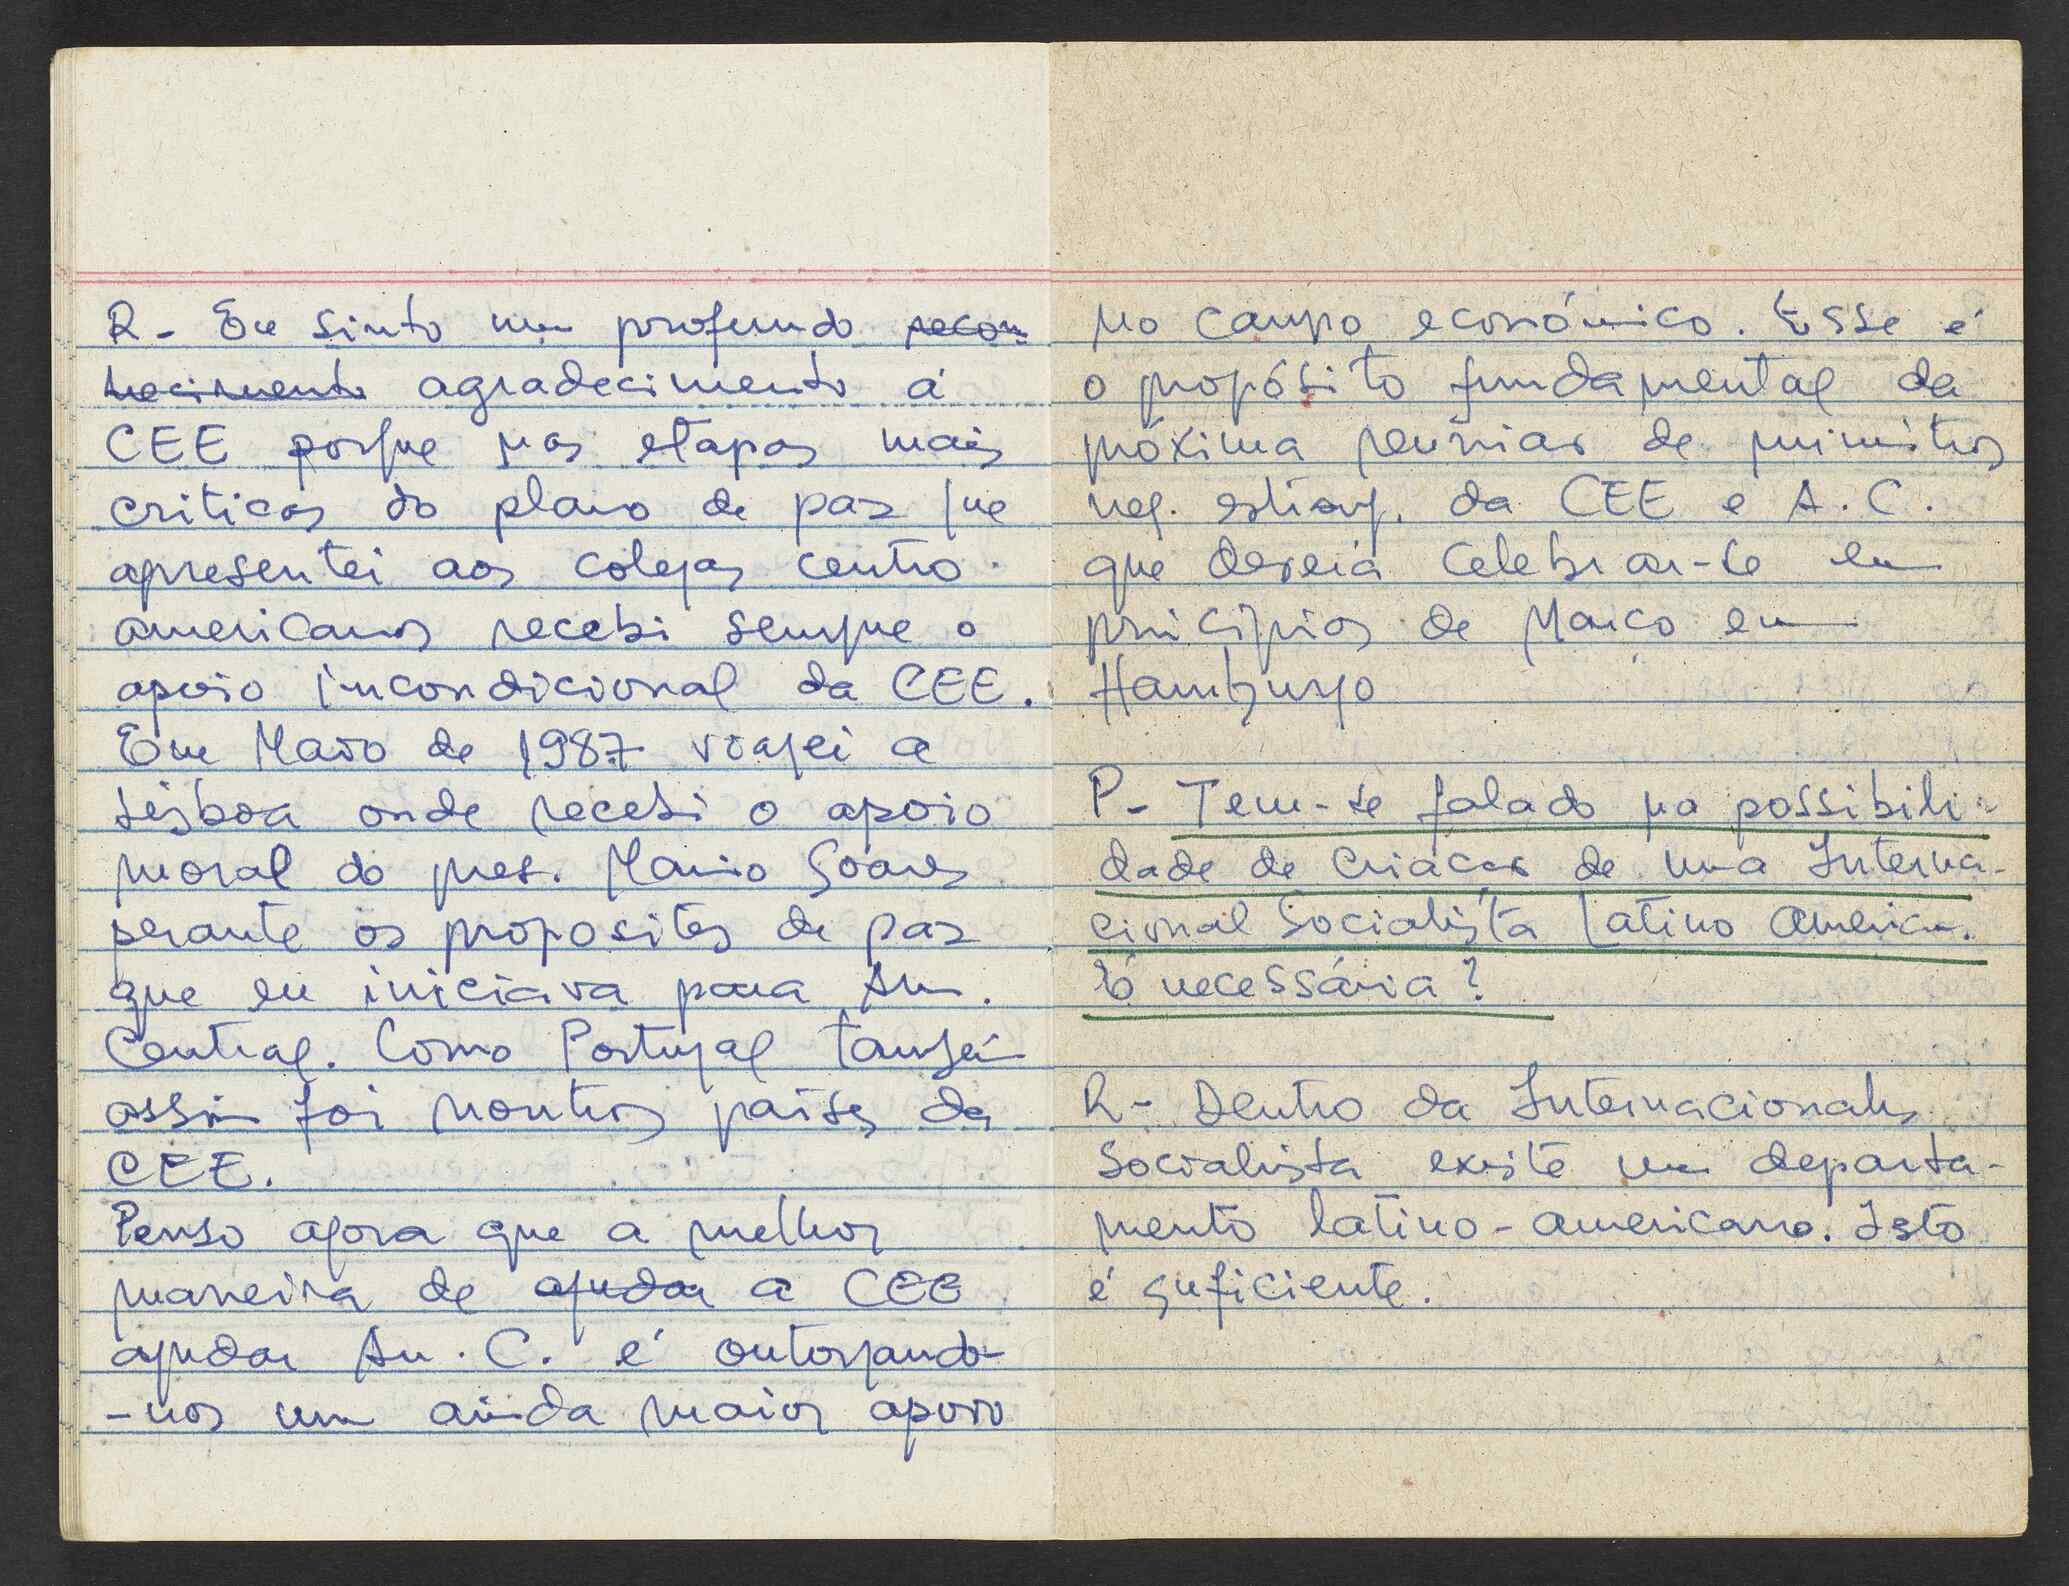 R- Eu sinto um profundo recon-
hecimento agradecimento á
CEE porque nas etapas mais
criticas do plano de paz que
apresentei aos colegas centro-
americanos recebi sempre o
apoio incondicional da CEE.
Em Maio de 1987 viajei a
Lisboa onde recebi o apoio
moral do pres. Mario Soares
perante os propositos de paz
que eu iniciava para Am.
Central. Como Portugal também
assim foi noutros países da
CEE.
Penso agora que a melhor
maneira de ajudar a CEE
ajudar Am. C. é outorgando-
-nos um ainda maior apoio
no campo económico. Esse é
o propósito fundamental da
próxima reunião de ministros
neg. estrang. da CEE e A. C.
que deverá celebrar-se em
principios de Março em
Hamburgo
P- Tem-se falado na possibili-
dade de criação de uma Interna-
cional Socialista Latino American.
É necessária?
R- Dentro da Internacional
Socialista existe um departa-
mento latino-americano. Isto
é suficiente.